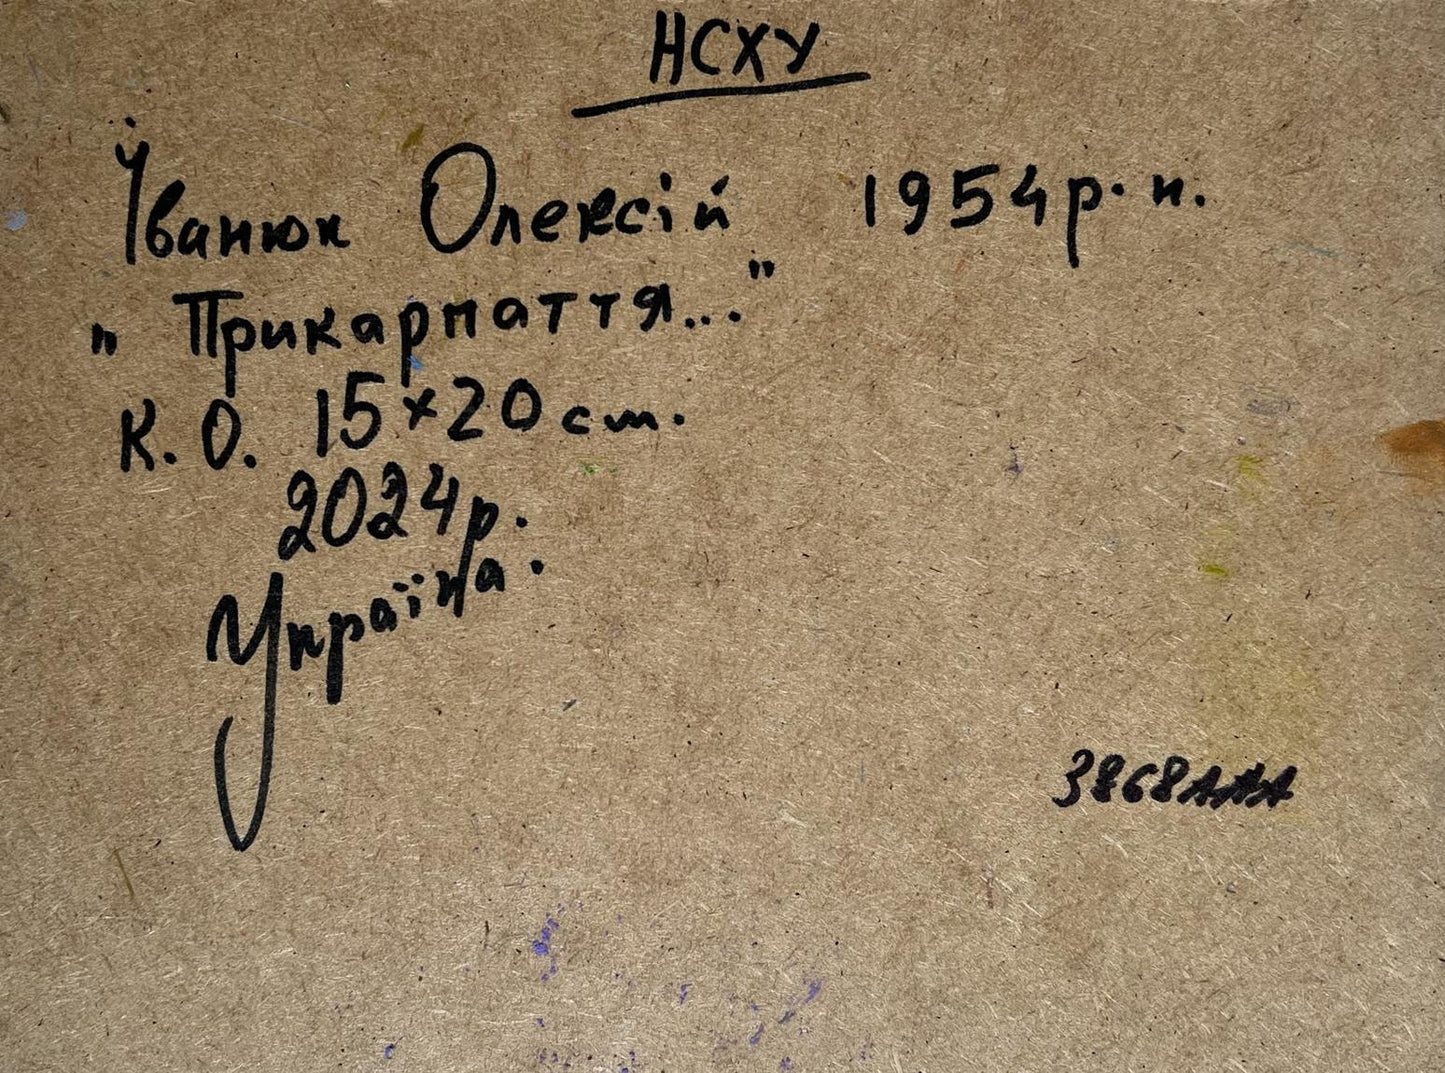 НСХУ
Іванюк Олексій 1954р.н.
"Прикарпаття..."
К.О. 15×20 см.
2024р.
Україна.
3868ААА